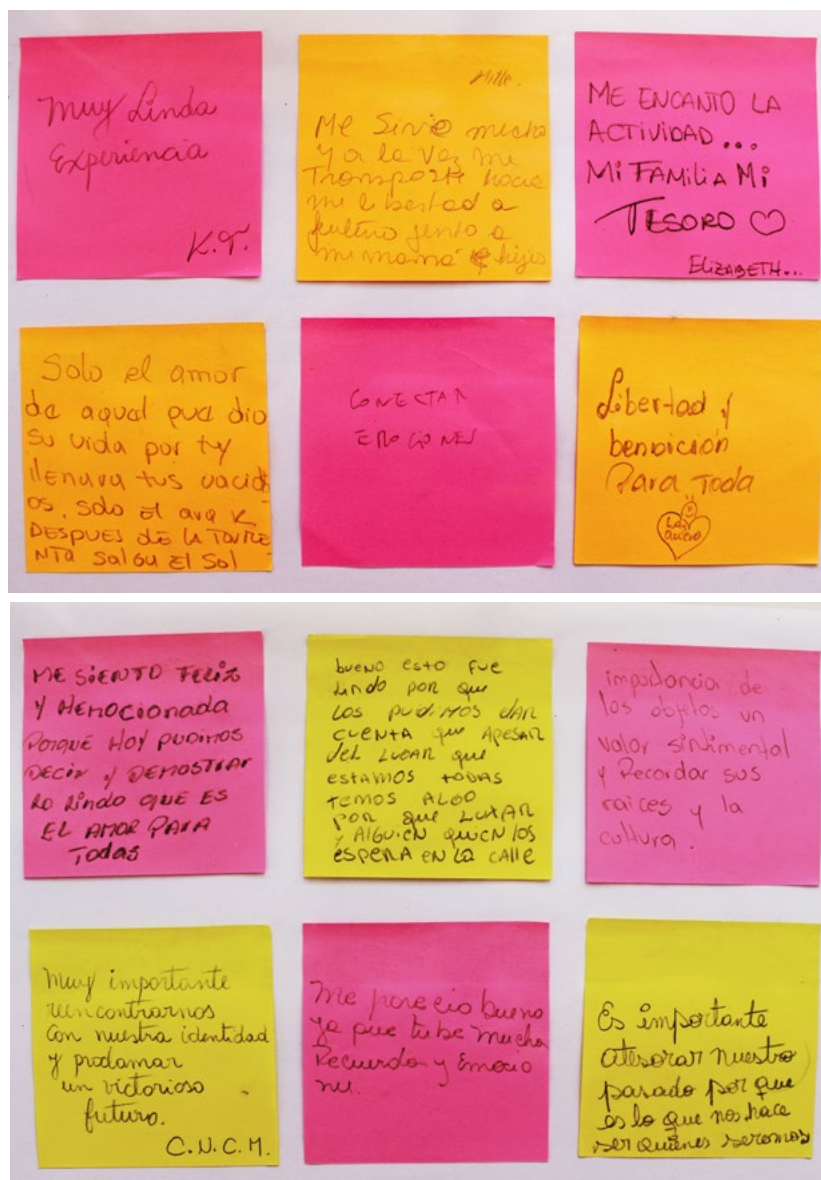 Muy Linda
Experiencia
K.T.
Mille.
Me Sirvio mucho
y a la vez me
Transporte hacia
mi libertad a
futuro junto a
mi mamá e hijos
ME ENCANTO LA
ACTIVIDAD...
Mi FAMiLiA Mi
TESORO ♡
ELIZABETH...
Solo el amor
de aquel que dio
su vida por ty
llenara tus vacid
os, solo el ara k
DESPUES DE LA TORME
NTA Salga El Sol
CONECTAR
EMOCIONES
Libertad y
bendición
Para Toda
Las
quiero
ME SiENTO FELiz
Y HEMOCiONADA
PORQUE HOY PUDIMOS
DECiR y DEMOSTRAR
LO LiNDO QUE ES
EL AMOR PARA
TodaS
bueno esto fue
Lindo por que
LOS PUDIMOS DAR
CUENTA que APESAR
DEL LUGAR que
ESTAMOS todas
TEMOS ALGO
POR que LUXAR
Y ALGUiEN QUiEN LOS
ESPERA EN LA CAllE
importancia de
los objetos un
valor sintimental
y Recordar sus
raices y la
cultura.
Muy importante
reencontrarnos
con nuestra identidad
y proclamar
un victorioso
futuro.
C.N.C.M.
Me parecio bueno
ya que tube mucha
Recuerdo y Emocio
nes.
Es importante
atesorar nuestro
pasado por que
es lo que nos hace
ser quienes seremos